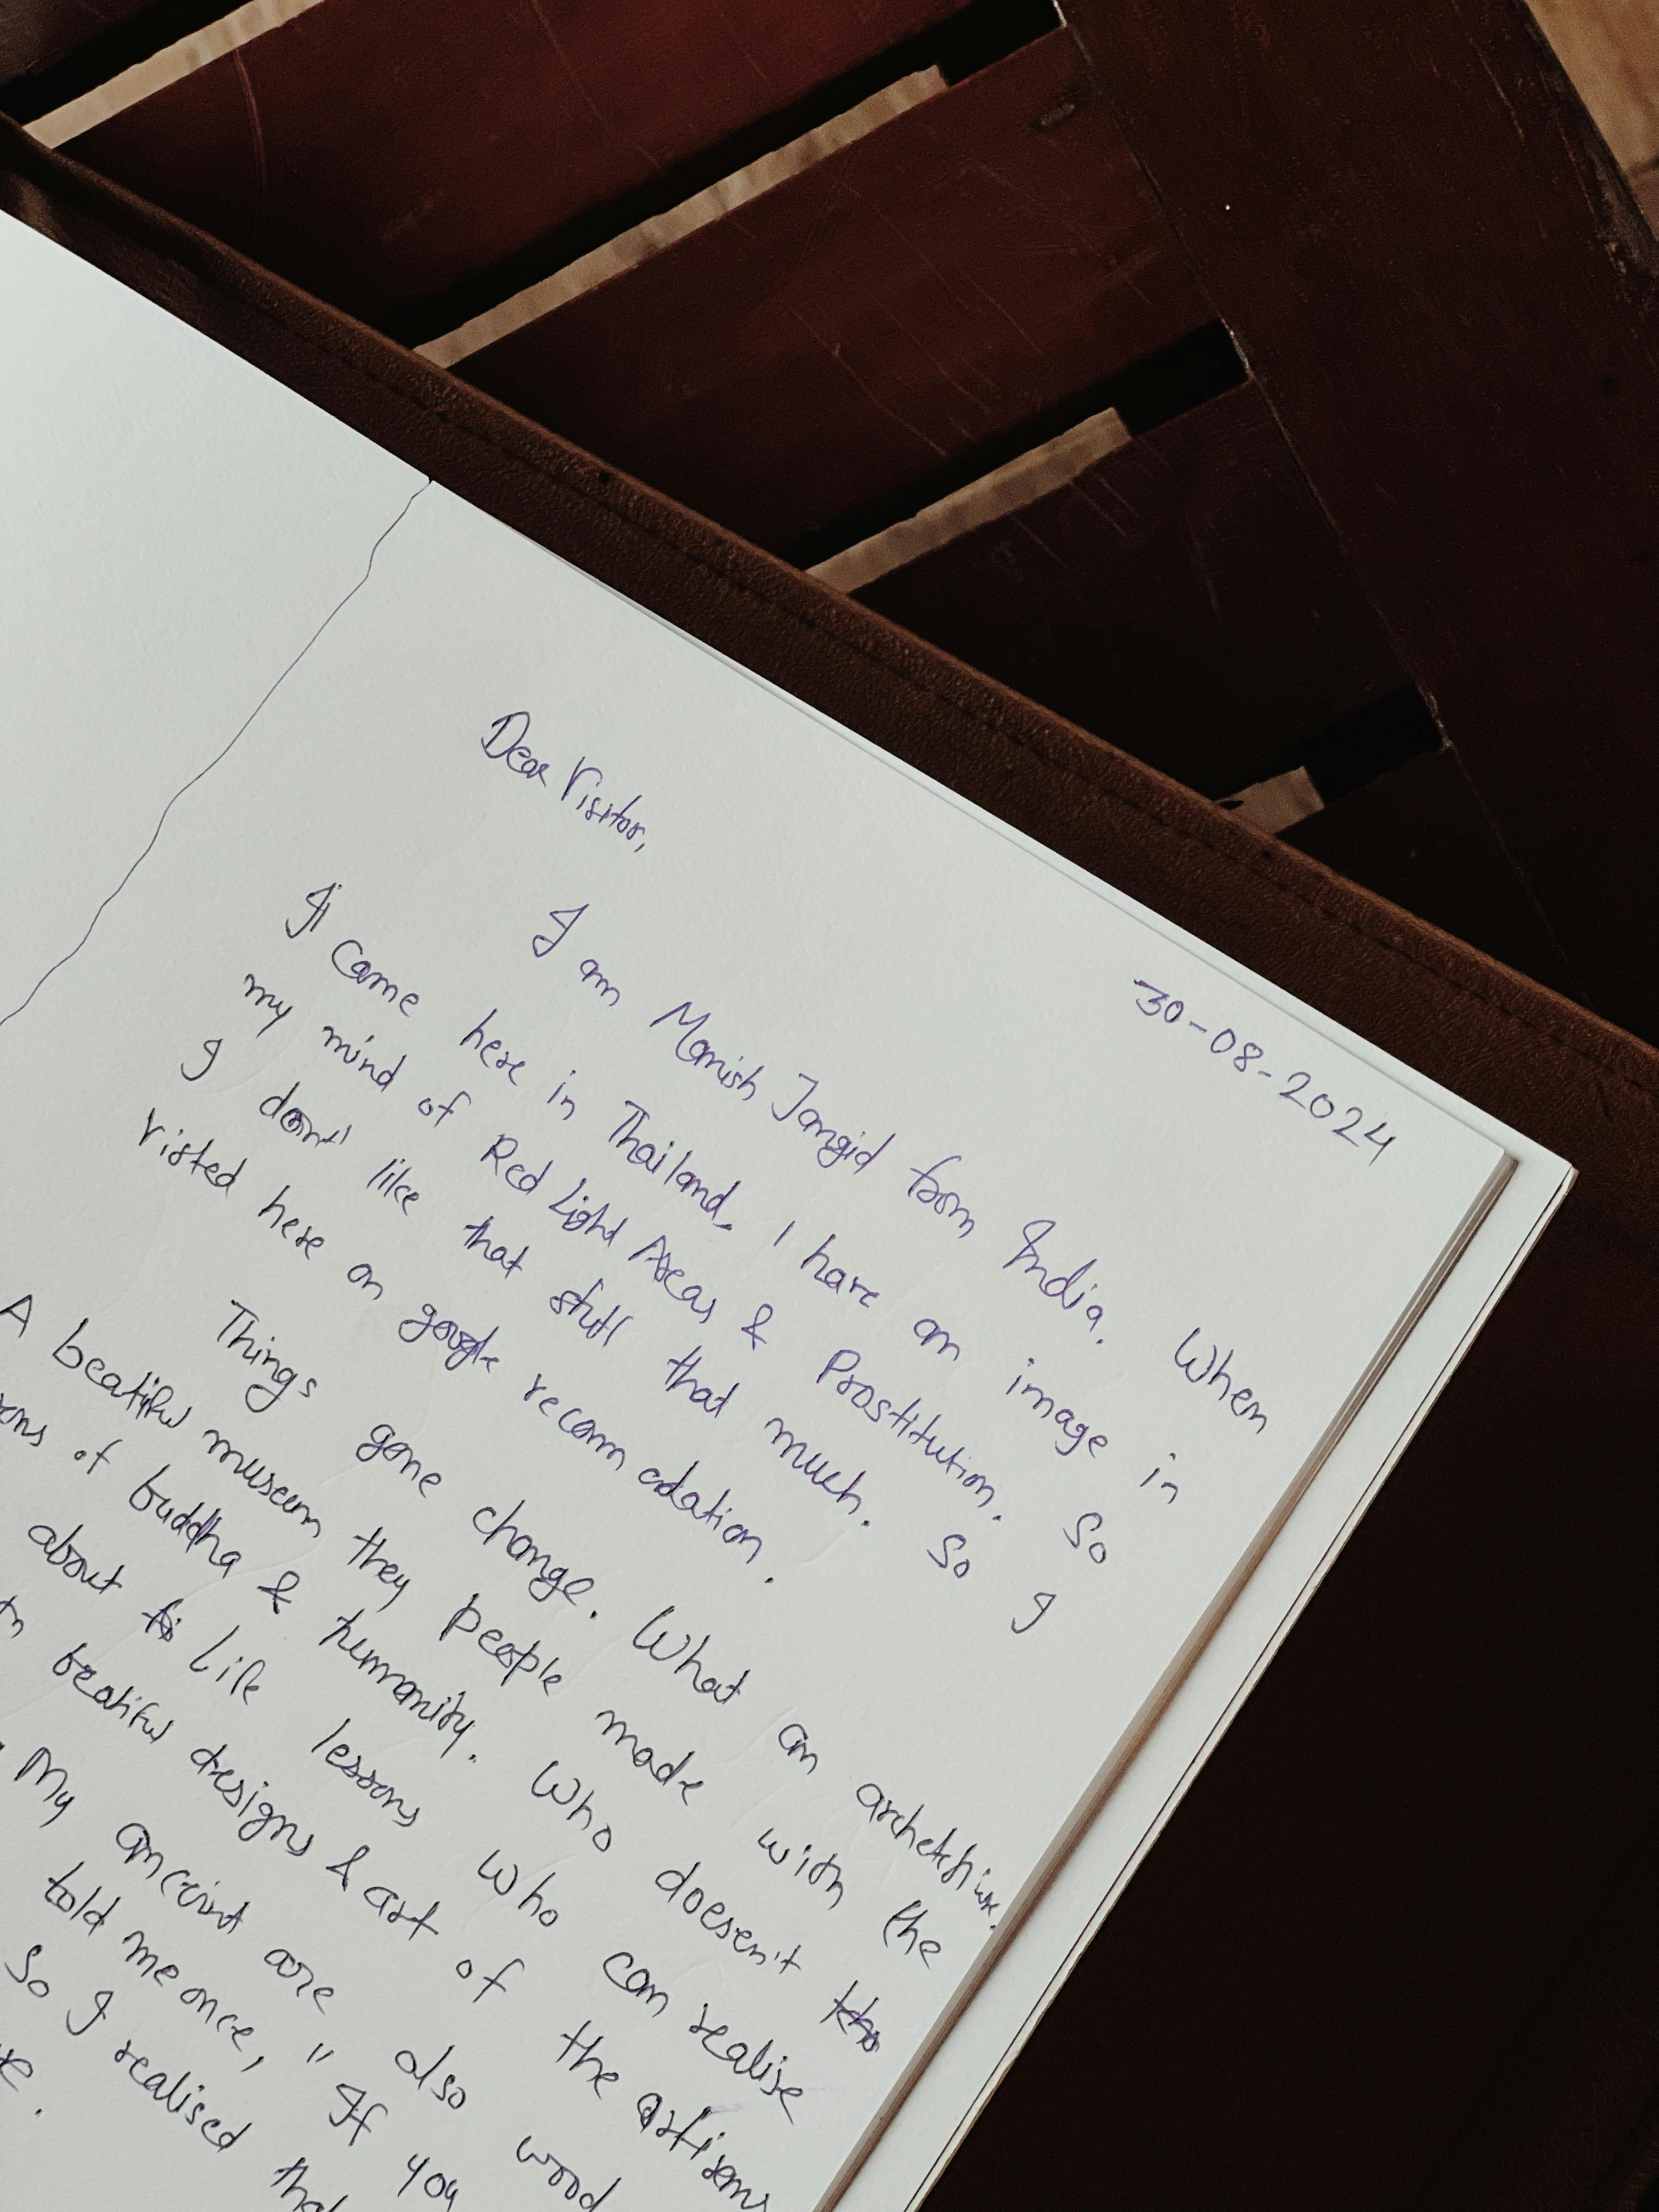 30-08-2024
Dear Visitor,
I am Manish Jangid from India. When
I came here in Thailand, I have an image in
my mind of Red Light Areas & Prostitution. So
I don't like that stuff that much. So I
visted here on google recomm adation.
Things gone change. What an
A beatiful museum they people made with the
of buddha & humanity. Who doesen't
about life lessons who can realise
beatiful designs & art of the artisens
My anceint are also wood
told me once, " If you
So I realised that